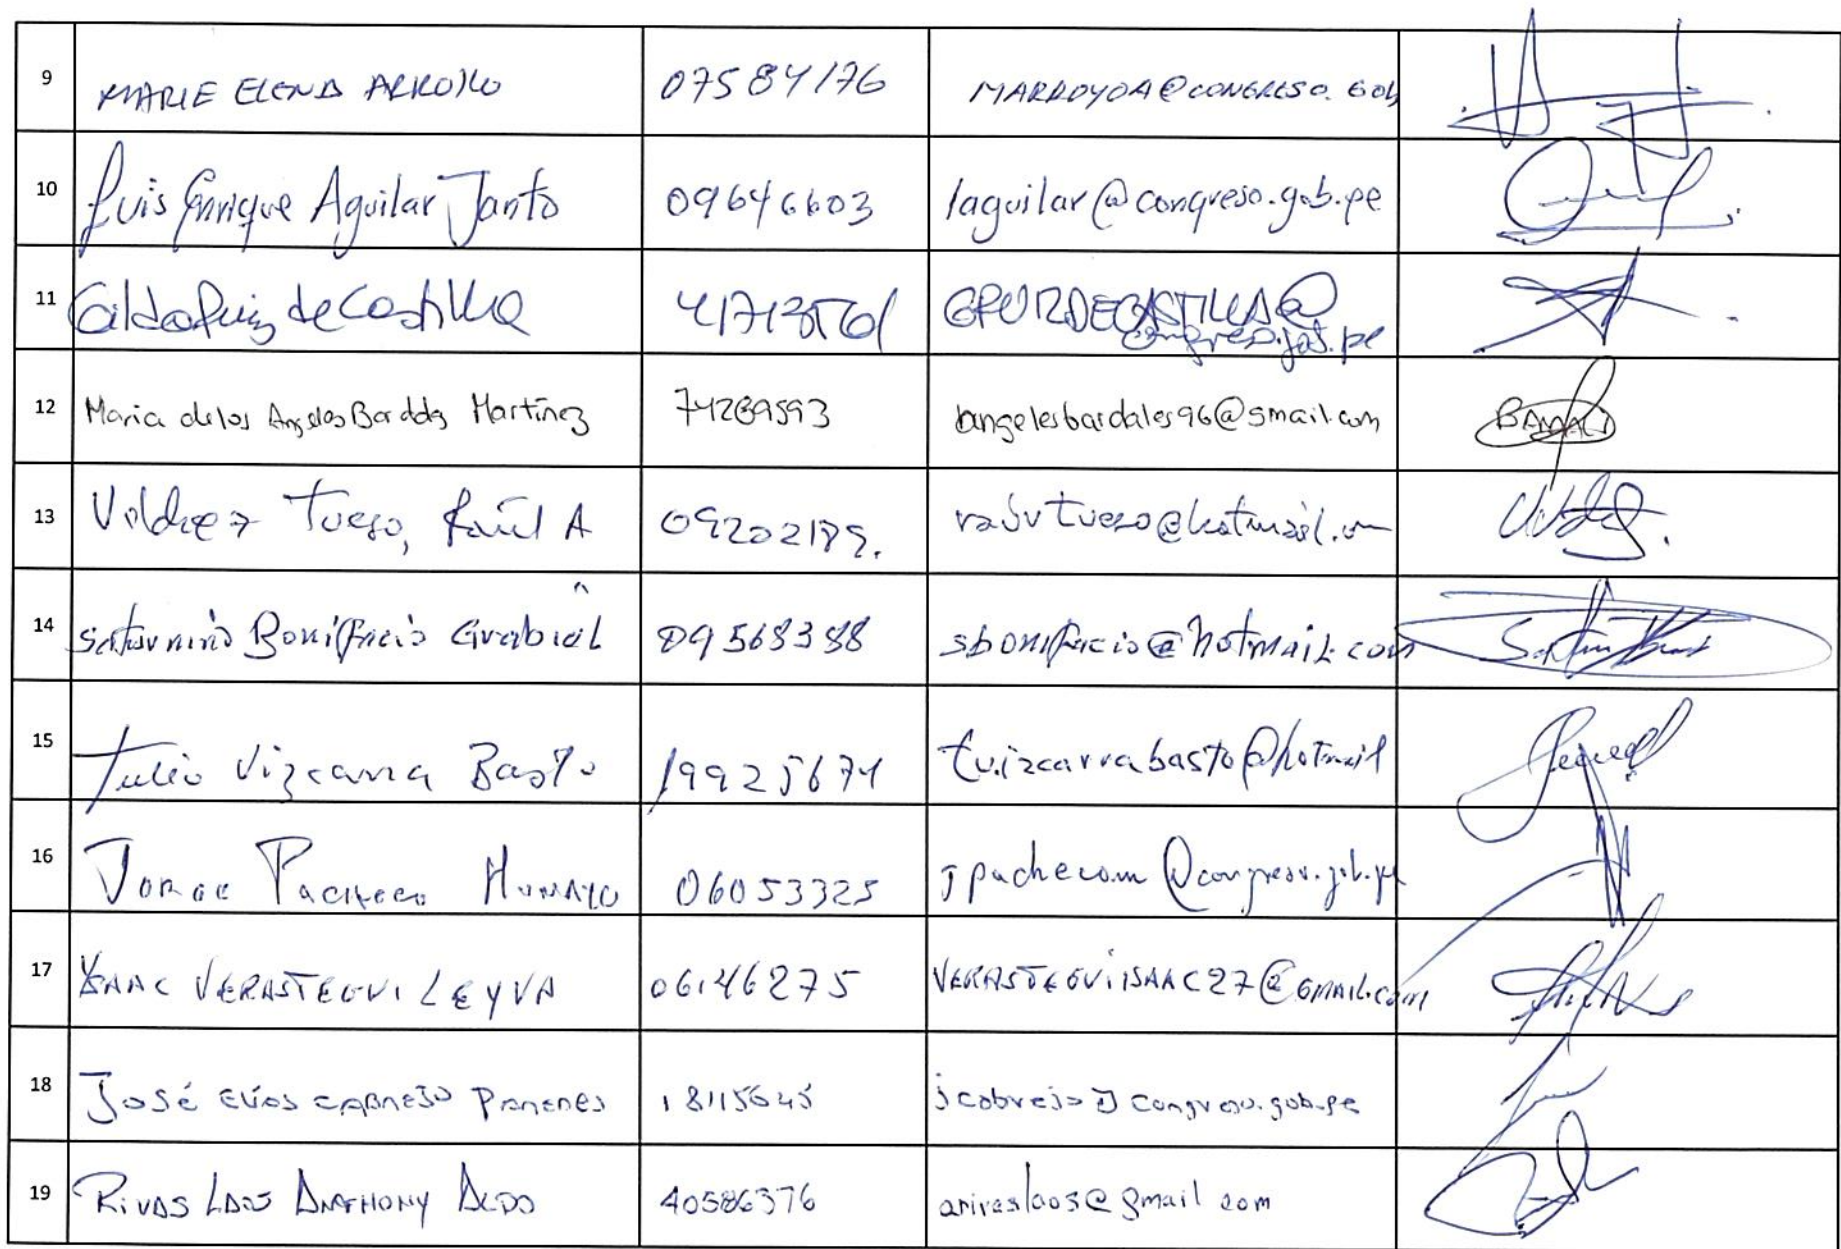 9 MARIE ELENA ARROYO 07584176 MARROYOA@CONGRESO.GOB
10 Luis Enrique Aguilar Janto 09646603 laguilar@congreso.gob.pe
11 Gilda Ruiz de Castilla GRUIZDECASTILLA@
congreso.gob.pe
12 Maria de los Angeles Bardales Martínez 74289593 angelesbardales96@gmail.com
13 Raúl A
14 Saturnino Bonifacio 09568388 sbonifacio@hotmail.com
15 Tulio Vizcarra Basto 19925671 tvizcarrabasto@hotmail
16 JORGE PACHECO 06053325 jpachecom@congreso.gob.pe
17 ISAAC VERASTEGUI LEYVA 06146275 VERASTEGUIISAAC27@GMAIL.com
18 José Elías CABREJO 18115645 jcabrejo@congreso.gob.pe
19 RIVAS LAOS ANTHONY ALDO 40586376 ariveslaos@gmail com